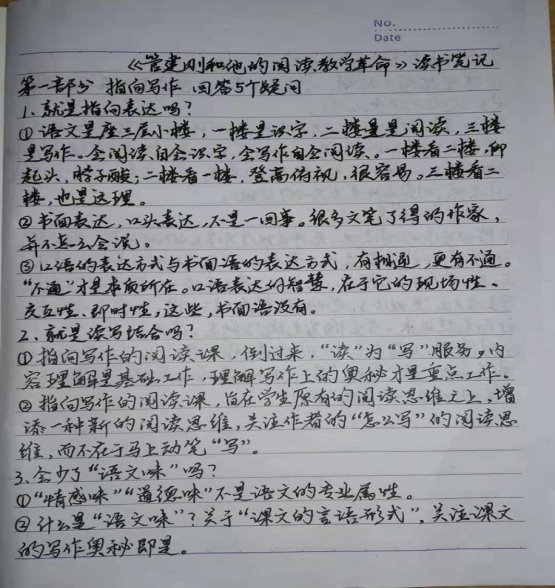 No.
Date
《管建刚和他的阅读教学革命》读书笔记
第一部分 指向写作 回答5个疑问
1、就是指向表达吗？
①语文是座三层小楼，一楼是识字，二楼是阅读，三楼
是写作。会阅读自会识字，会写作自会阅读。一楼看二楼，仰
起头，脖子酸；二楼看一楼，登高俯视，很容易。三楼看二
楼，也是这理。
②书面表达，口头表达，不是一回事。很多文笔了得的作家，
并不怎么会说。
③口语的表达方式与书面语的表达方式，有相通，更有不通。
“不通”才是本质所在。口语表达的智慧，在于它的现场性、
交互性、即时性，这些，书面语没有。
2、就是读写结合吗？
①指向写作的阅读课，倒过来，“读”为“写”服务。内
容理解是基础工作，理解写作上的奥秘才是重点工作。
②指向写作的阅读课，旨在学生原有的阅读思维之上，增
添一种新的阅读思维，关注作者的“怎么写”的阅读思
维，而不在于马上动笔“写”。
3、会少了“语文味”吗？
①“情感味”“道德味”不是语文的专业属性。
②什么是“语文味”？关于“课文的言语形式”。关注课文
的写作奥秘即是。